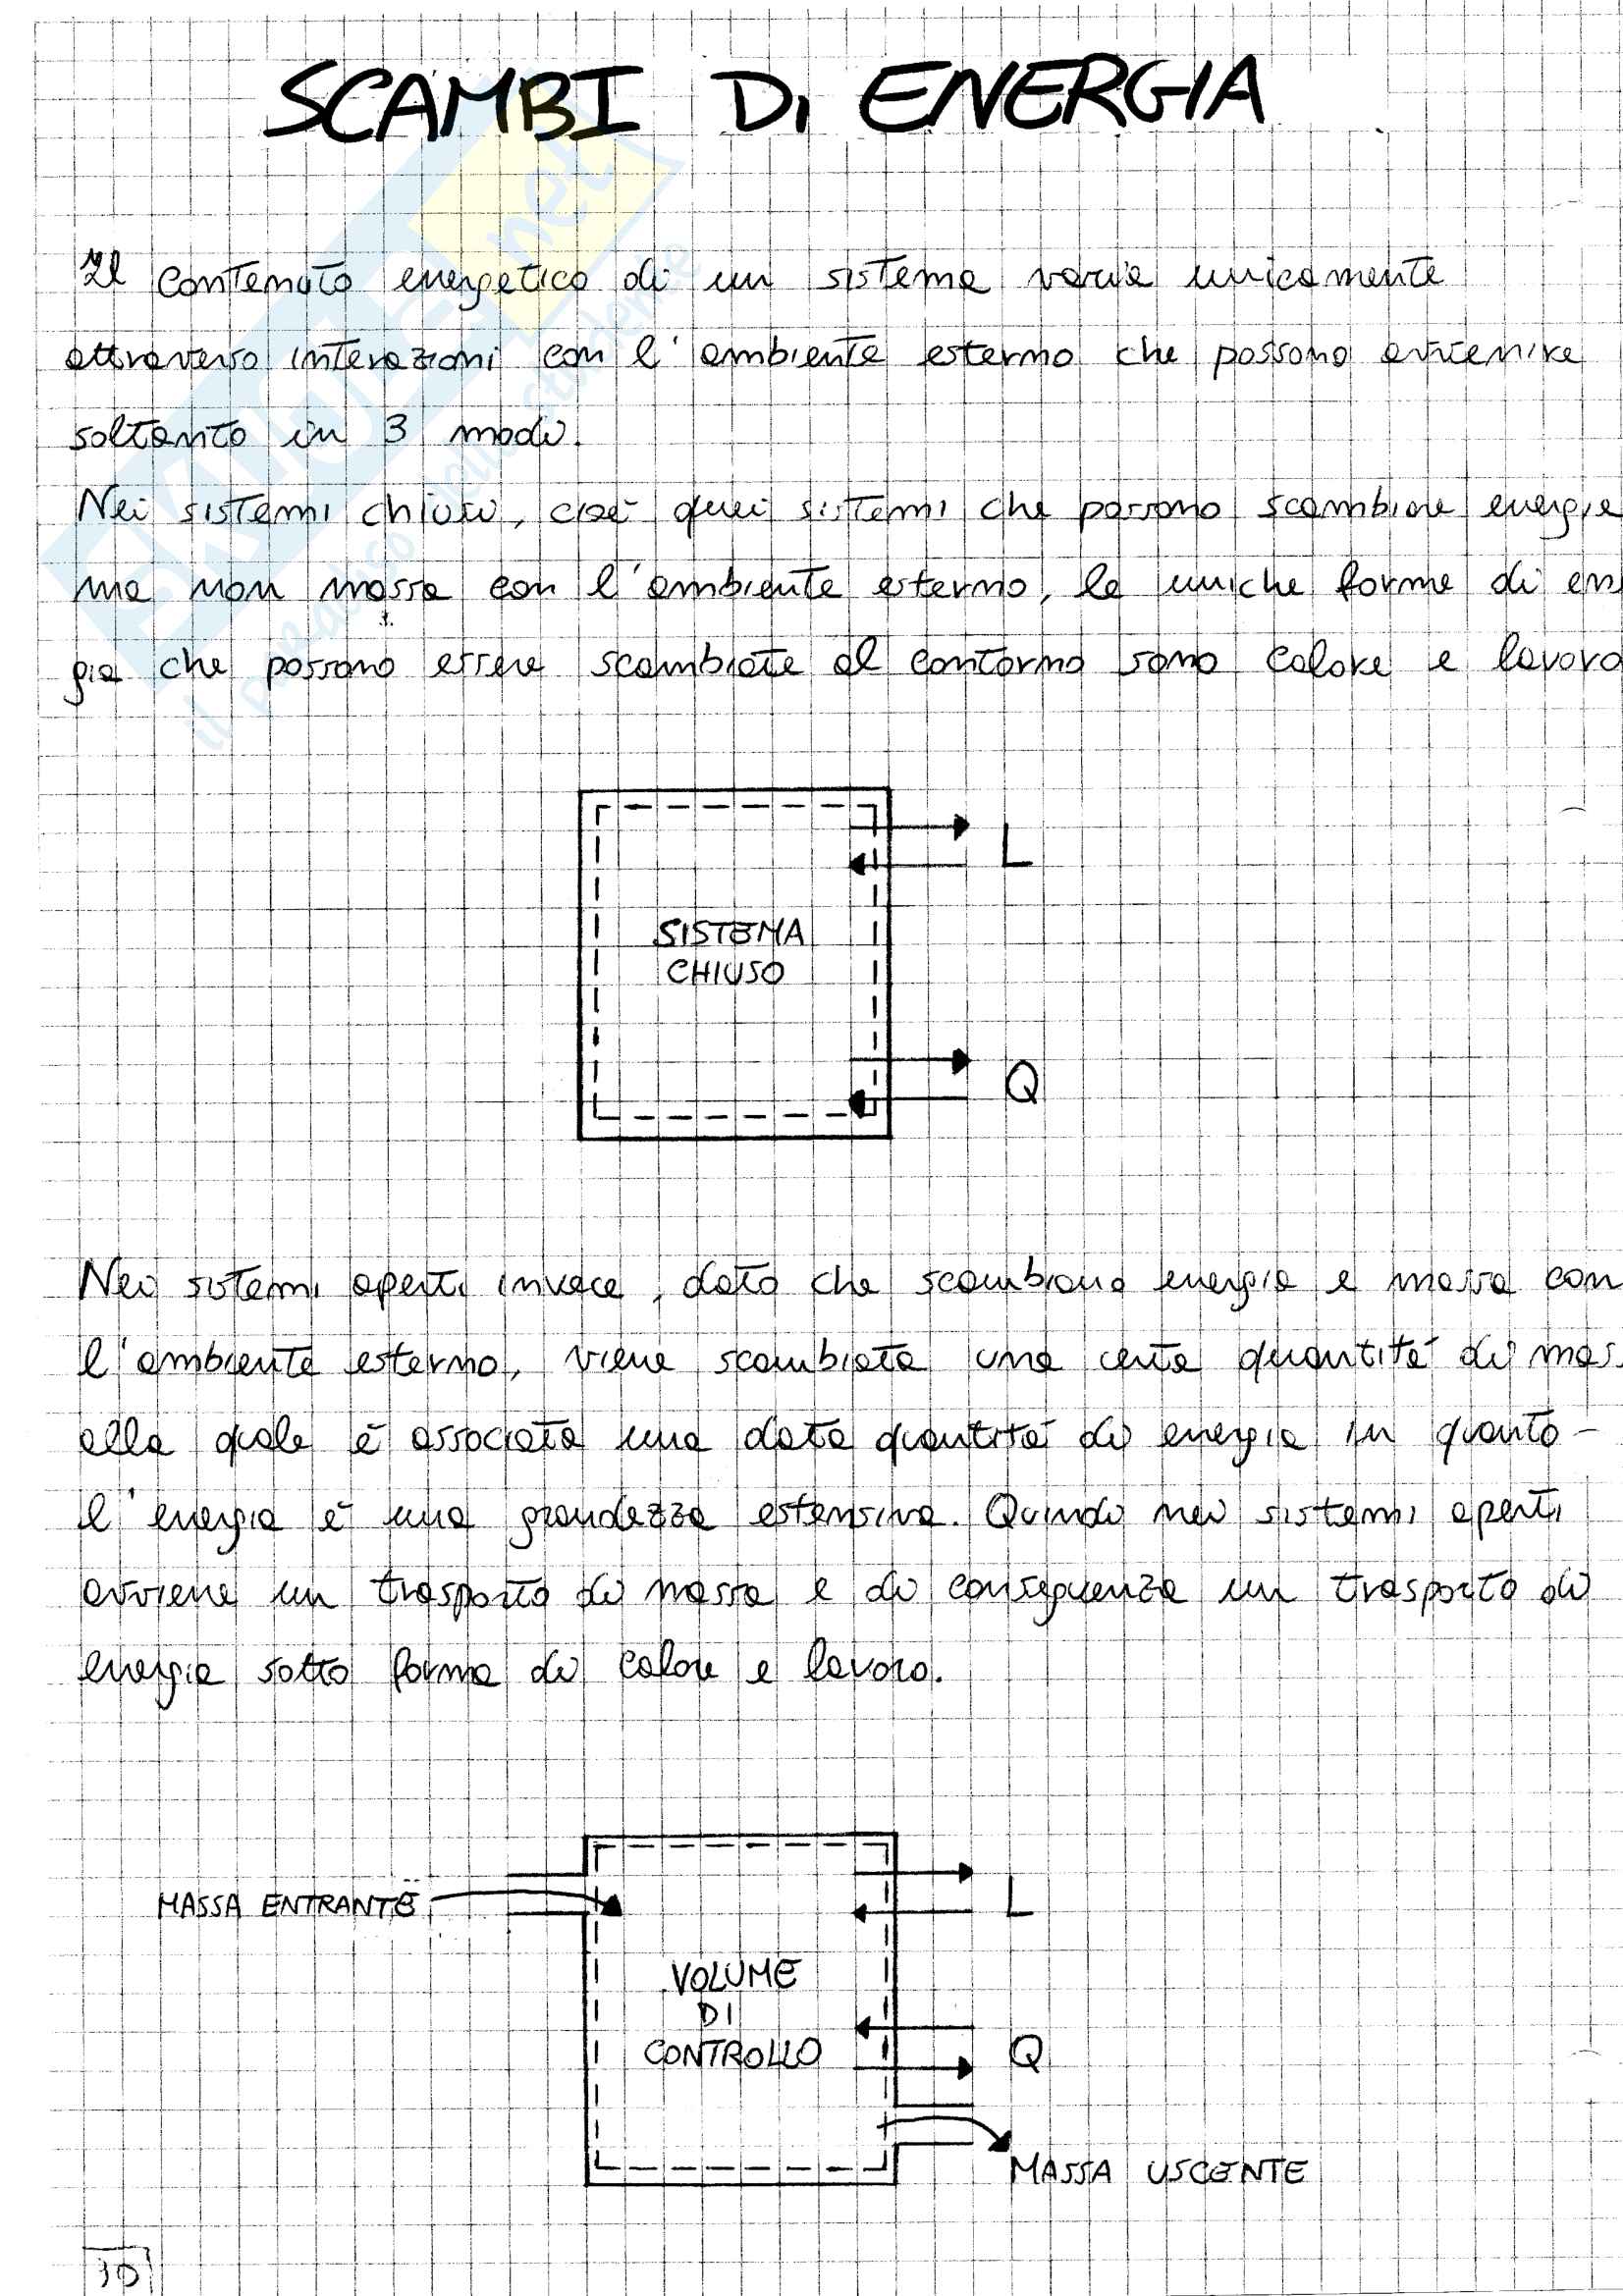 SCAMBI Di ENERGIA
Il contenuto energetico di un sistema varia unicamente
attraverso interazioni con l'ambiente esterno che possono avvenire
soltanto in 3 modi.
Nei sistemi chiusi, cioè quei sistemi che possono scambiare energia
ma non massa con l'ambiente esterno, le uniche forme di en
gia che possono essere scambiate al contorno sono calore e lavoro
L
SISTEMA
CHIUSO
Q
Nei sistemi aperti invece, dato che scambiano energia e massa con
l'ambiente esterno, viene scambiata una certa quantità di mas
alla quale è associata una data quantità di energia in quanto -
l'energia è una grandezza estensiva. Quindi nei sistemi aperti
avviene un trasporto di massa e di conseguenza un trasporto di
energia sotto forma di calore e lavoro.
MASSA ENTRANTE
L
VOLUME
DI
CONTROLLO
Q
MASSA USCENTE